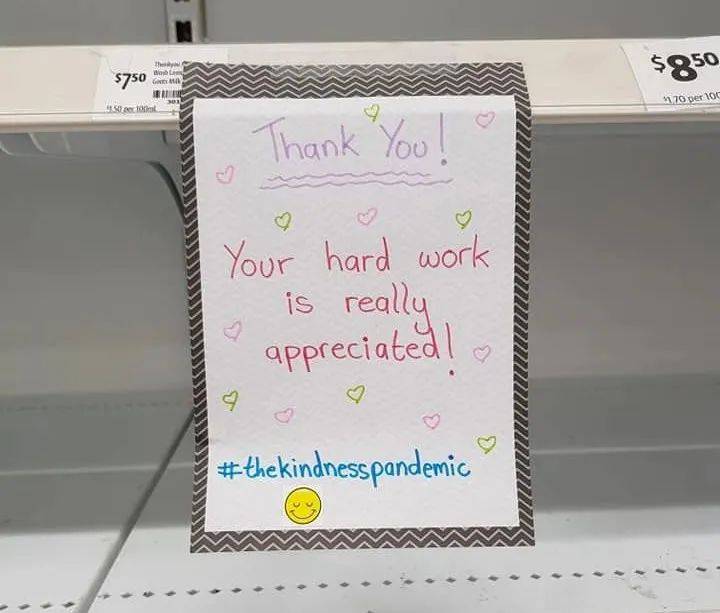 $7.50
Thankyou
$1.50 per 100mL
$8.50
$1.70 per 100
Thank You!
Your hard work
is really
appreciated!
#thekindnesspandemic